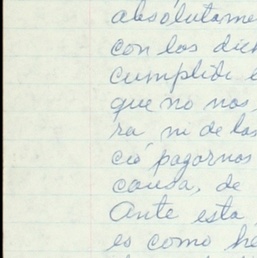 absolutame
con los dich
cumplidi e
que no nos
ra ni de las
ció pagarnos
causa, de
Ante esta
es como he